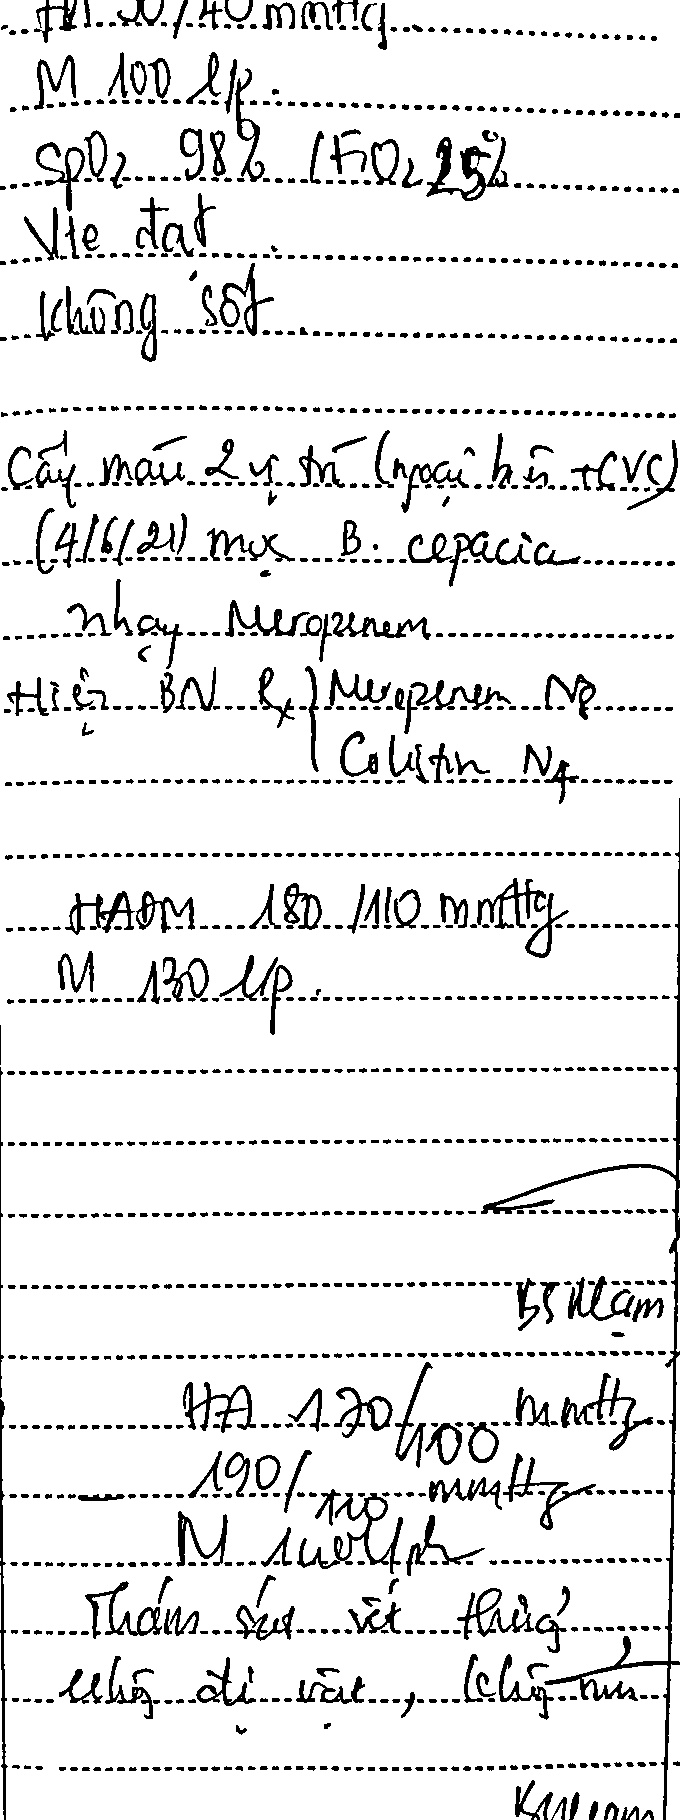 HA 90/40 mmHg
M 100 l/p.
SpO2 98% (FiO2 25%
Vte đạt.
Không sốt.
Cấy máu 2 vị trí (ngoại bì +CVC)
(4/6/21) mọc B. cepacia
nhạy Meropenem
Hiện BN Rx } Meropenem N8
Colistin N4
HAĐM 180/110 mmHg
M 130 l/p.
BS
HA 170/100 mmHg
- 190/110 mmHg
M 140 l/ph
Thám sát vết
dị vật,